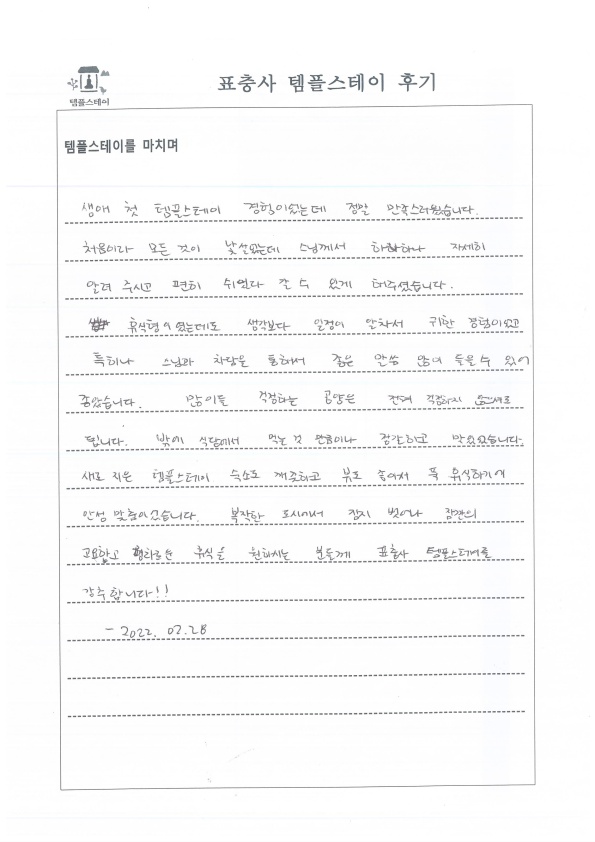 템플스테이
표충사 템플스테이 후기
템플스테이를 마치며
생애 첫 템플스테이 경험이었는데 정말 만족스러웠습니다.
처음이라 모든 것이 낯설었는데 스님께서 하나하나 자세히
알려 주시고 편히 쉬었다 갈 수 있게 해주셨습니다.
휴식형이었는데도 생각보다 일정이 알차서 귀한 경험이었고
특히나 스님과 차담을 통해서 좋은 말씀 많이 들을 수 있어
좋았습니다. 많이들 걱정하는 공양은 전혀 걱정하지 않으셔도
됩니다. 밖에 식당에서 먹는 것 만큼이나 정갈하고 맛있었습니다.
새로 지은 템플스테이 숙소도 깨끗하고 뷰도 좋아서 푹 휴식하기에
안성 맞춤이었습니다. 복작한 도시에서 잠시 벗어나 잠깐의
고요함과 평화로운 휴식을 원하시는 분들께 표충사 템플스테이를
강추합니다!!
- 2022. 02. 28